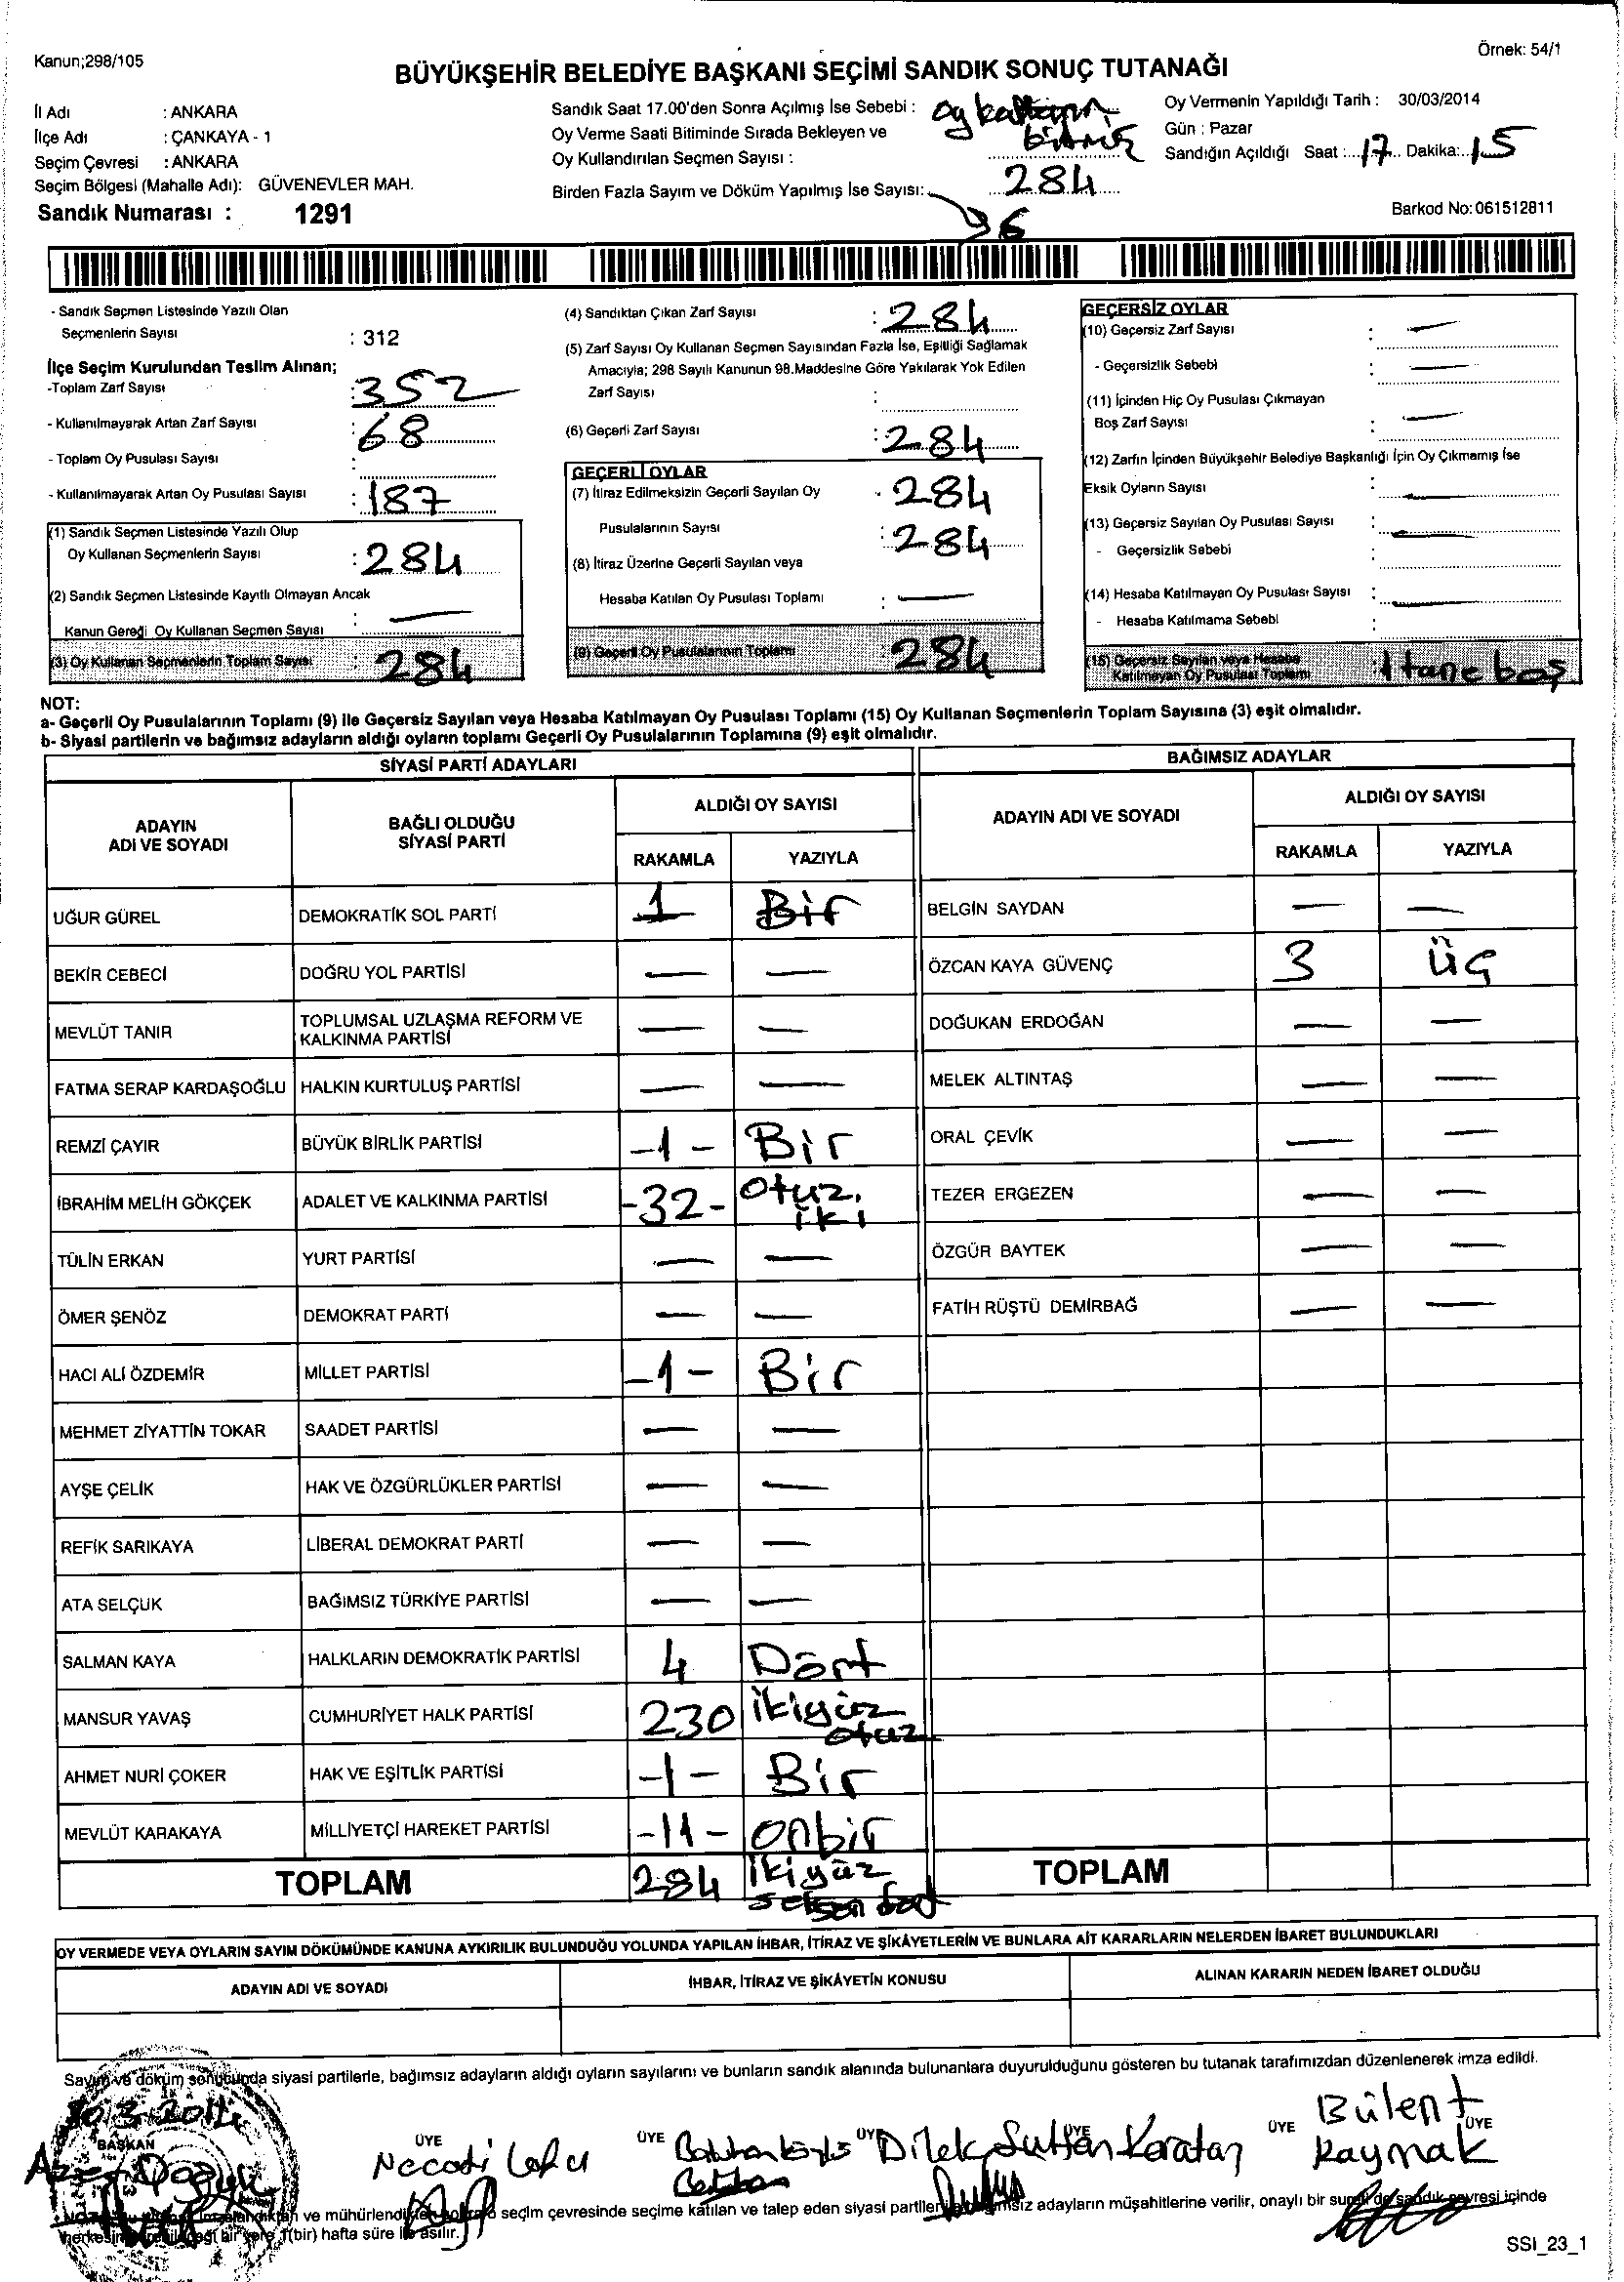 Kanun;298/105
Örnek: 54/1
BÜYÜKŞEHİR BELEDİYE BAŞKANI SEÇİMİ SANDIK SONUÇ TUTANAĞI
İl Adı : ANKARA
İlçe Adı : ÇANKAYA - 1
Seçim Çevresi : ANKARA
Seçim Bölgesi (Mahalle Adı): GÜVENEVLER MAH.
Sandık Numarası : 1291
Sandık Saat 17.00'den Sonra Açılmış İse Sebebi : oy
Oy Verme Saati Bitiminde Sırada Bekleyen ve
Oy Kullandırılan Seçmen Sayısı :
Birden Fazla Sayım ve Döküm Yapılmış İse Sayısı: 284
96
Oy Vermenin Yapıldığı Tarih : 30/03/2014
Gün : Pazar
Sandığın Açıldığı Saat : 17 Dakika: 15
Barkod No:061512811
- Sandık Seçmen Listesinde Yazılı Olan
Seçmenlerin Sayısı : 312
İlçe Seçim Kurulundan Teslim Alınan;
-Toplam Zarf Sayısı : 352
- Kullanılmayarak Artan Zarf Sayısı : 68
- Toplam Oy Pusulası Sayısı :
- Kullanılmayarak Artan Oy Pusulası Sayısı : 187
(1) Sandık Seçmen Listesinde Yazılı Olup
Oy Kullanan Seçmenlerin Sayısı : 284
(2) Sandık Seçmen Listesinde Kayıtlı Olmayan Ancak
Kanun Gereği Oy Kullanan Seçmen Sayısı : —
(3) Oy Kullanan Seçmenlerin Toplam Sayısı : 284
(4) Sandıktan Çıkan Zarf Sayısı : 284
(5) Zarf Sayısı Oy Kullanan Seçmen Sayısından Fazla İse, Eşitliği Sağlamak
Amacıyla; 298 Sayılı Kanunun 98.Maddesine Göre Yakılarak Yok Edilen
Zarf Sayısı :
(6) Geçerli Zarf Sayısı : 284
GEÇERLİ OYLAR
(7) İtiraz Edilmeksizin Geçerli Sayılan Oy 284
Pusulalarının Sayısı : 284
(8) İtiraz Üzerine Geçerli Sayılan veya
Hesaba Katılan Oy Pusulası Toplamı : —
(9) Geçerli Oy Pusulalarının Toplamı : 284
GEÇERSİZ OYLAR
(10) Geçersiz Zarf Sayısı : —
- Geçersizlik Sebebi : —
(11) İçinden Hiç Oy Pusulası Çıkmayan
Boş Zarf Sayısı : —
(12) Zarfın İçinden Büyükşehir Belediye Başkanlığı İçin Oy Çıkmamış İse
Eksik Oyların Sayısı : —
(13) Geçersiz Sayılan Oy Pusulası Sayısı : —
- Geçersizlik Sebebi :
(14) Hesaba Katılmayan Oy Pusulası Sayısı : —
- Hesaba Katılmama Sebebi :
(15) Geçersiz Sayılan veya Hesaba
Katılmayan Oy Pusulası Toplamı : 1 tane boş
NOT:
a- Geçerli Oy Pusulalarının Toplamı (9) ile Geçersiz Sayılan veya Hesaba Katılmayan Oy Pusulası Toplamı (15) Oy Kullanan Seçmenlerin Toplam Sayısına (3) eşit olmalıdır.
b- Siyasi partilerin ve bağımsız adayların aldığı oyların toplamı Geçerli Oy Pusulalarının Toplamına (9) eşit olmalıdır.
SİYASİ PARTİ ADAYLARI
ADAYIN
ADI VE SOYADI
BAĞLI OLDUĞU
SİYASİ PARTİ
ALDIĞI OY SAYISI
RAKAMLA YAZIYLA
UĞUR GÜREL DEMOKRATİK SOL PARTİ 1 Bir
BEKİR CEBECİ DOĞRU YOL PARTİSİ — —
MEVLÜT TANIR TOPLUMSAL UZLAŞMA REFORM VE
KALKINMA PARTİSİ — —
FATMA SERAP KARDAŞOĞLU HALKIN KURTULUŞ PARTİSİ — —
REMZİ ÇAYIR BÜYÜK BİRLİK PARTİSİ -1- Bir
İBRAHİM MELİH GÖKÇEK ADALET VE KALKINMA PARTİSİ -32- Otuz
iki
TÜLİN ERKAN YURT PARTİSİ — —
ÖMER ŞENÖZ DEMOKRAT PARTİ — —
HACI ALİ ÖZDEMİR MİLLET PARTİSİ -1- Bir
MEHMET ZİYATTİN TOKAR SAADET PARTİSİ — —
AYŞE ÇELİK HAK VE ÖZGÜRLÜKLER PARTİSİ — —
REFİK SARIKAYA LİBERAL DEMOKRAT PARTİ — —
ATA SELÇUK BAĞIMSIZ TÜRKİYE PARTİSİ — —
SALMAN KAYA HALKLARIN DEMOKRATİK PARTİSİ 4 Dört
MANSUR YAVAŞ CUMHURİYET HALK PARTİSİ 230 ikiyüz
otuz
AHMET NURİ ÇOKER HAK VE EŞİTLİK PARTİSİ -1- Bir
MEVLÜT KARAKAYA MİLLİYETÇİ HAREKET PARTİSİ -11- onbir
TOPLAM 284 ikiyüz
seksen dört
BAĞIMSIZ ADAYLAR
ADAYIN ADI VE SOYADI
ALDIĞI OY SAYISI
RAKAMLA YAZIYLA
BELGİN SAYDAN — —
ÖZCAN KAYA GÜVENÇ 3 üç
DOĞUKAN ERDOĞAN — —
MELEK ALTINTAŞ — —
ORAL ÇEVİK — —
TEZER ERGEZEN — —
ÖZGÜR BAYTEK — —
FATİH RÜŞTÜ DEMİRBAĞ — —
TOPLAM
OY VERMEDE VEYA OYLARIN SAYIM DÖKÜMÜNDE KANUNA AYKIRILIK BULUNDUĞU YOLUNDA YAPILAN İHBAR, İTİRAZ VE ŞİKÂYETLERİN VE BUNLARA AİT KARARLARIN NELERDEN İBARET BULUNDUKLARI
ADAYIN ADI VE SOYADI İHBAR, İTİRAZ VE ŞİKÂYETİN KONUSU ALINAN KARARIN NEDEN İBARET OLDUĞU
Sayım ve döküm sonucunda siyasi partilerle, bağımsız adayların aldığı oyların sayılarını ve bunların sandık alanında bulunanlara duyurulduğunu gösteren bu tutanak tarafımızdan düzenlenerek imza edildi.
30.3.2014
BAŞKAN ÜYE ÜYE ÜYE ÜYE ÜYE ÜYE
Necati
Dilek Sultan Karatan
Bülent
Kaynak
ve seçim çevresinde seçime katılan ve talep eden siyasi adayların müşahitlerine verilir, onaylı bir sandık çevresi içinde
bir yere 1(bir) hafta süre ile asılır.
SSI_23_1